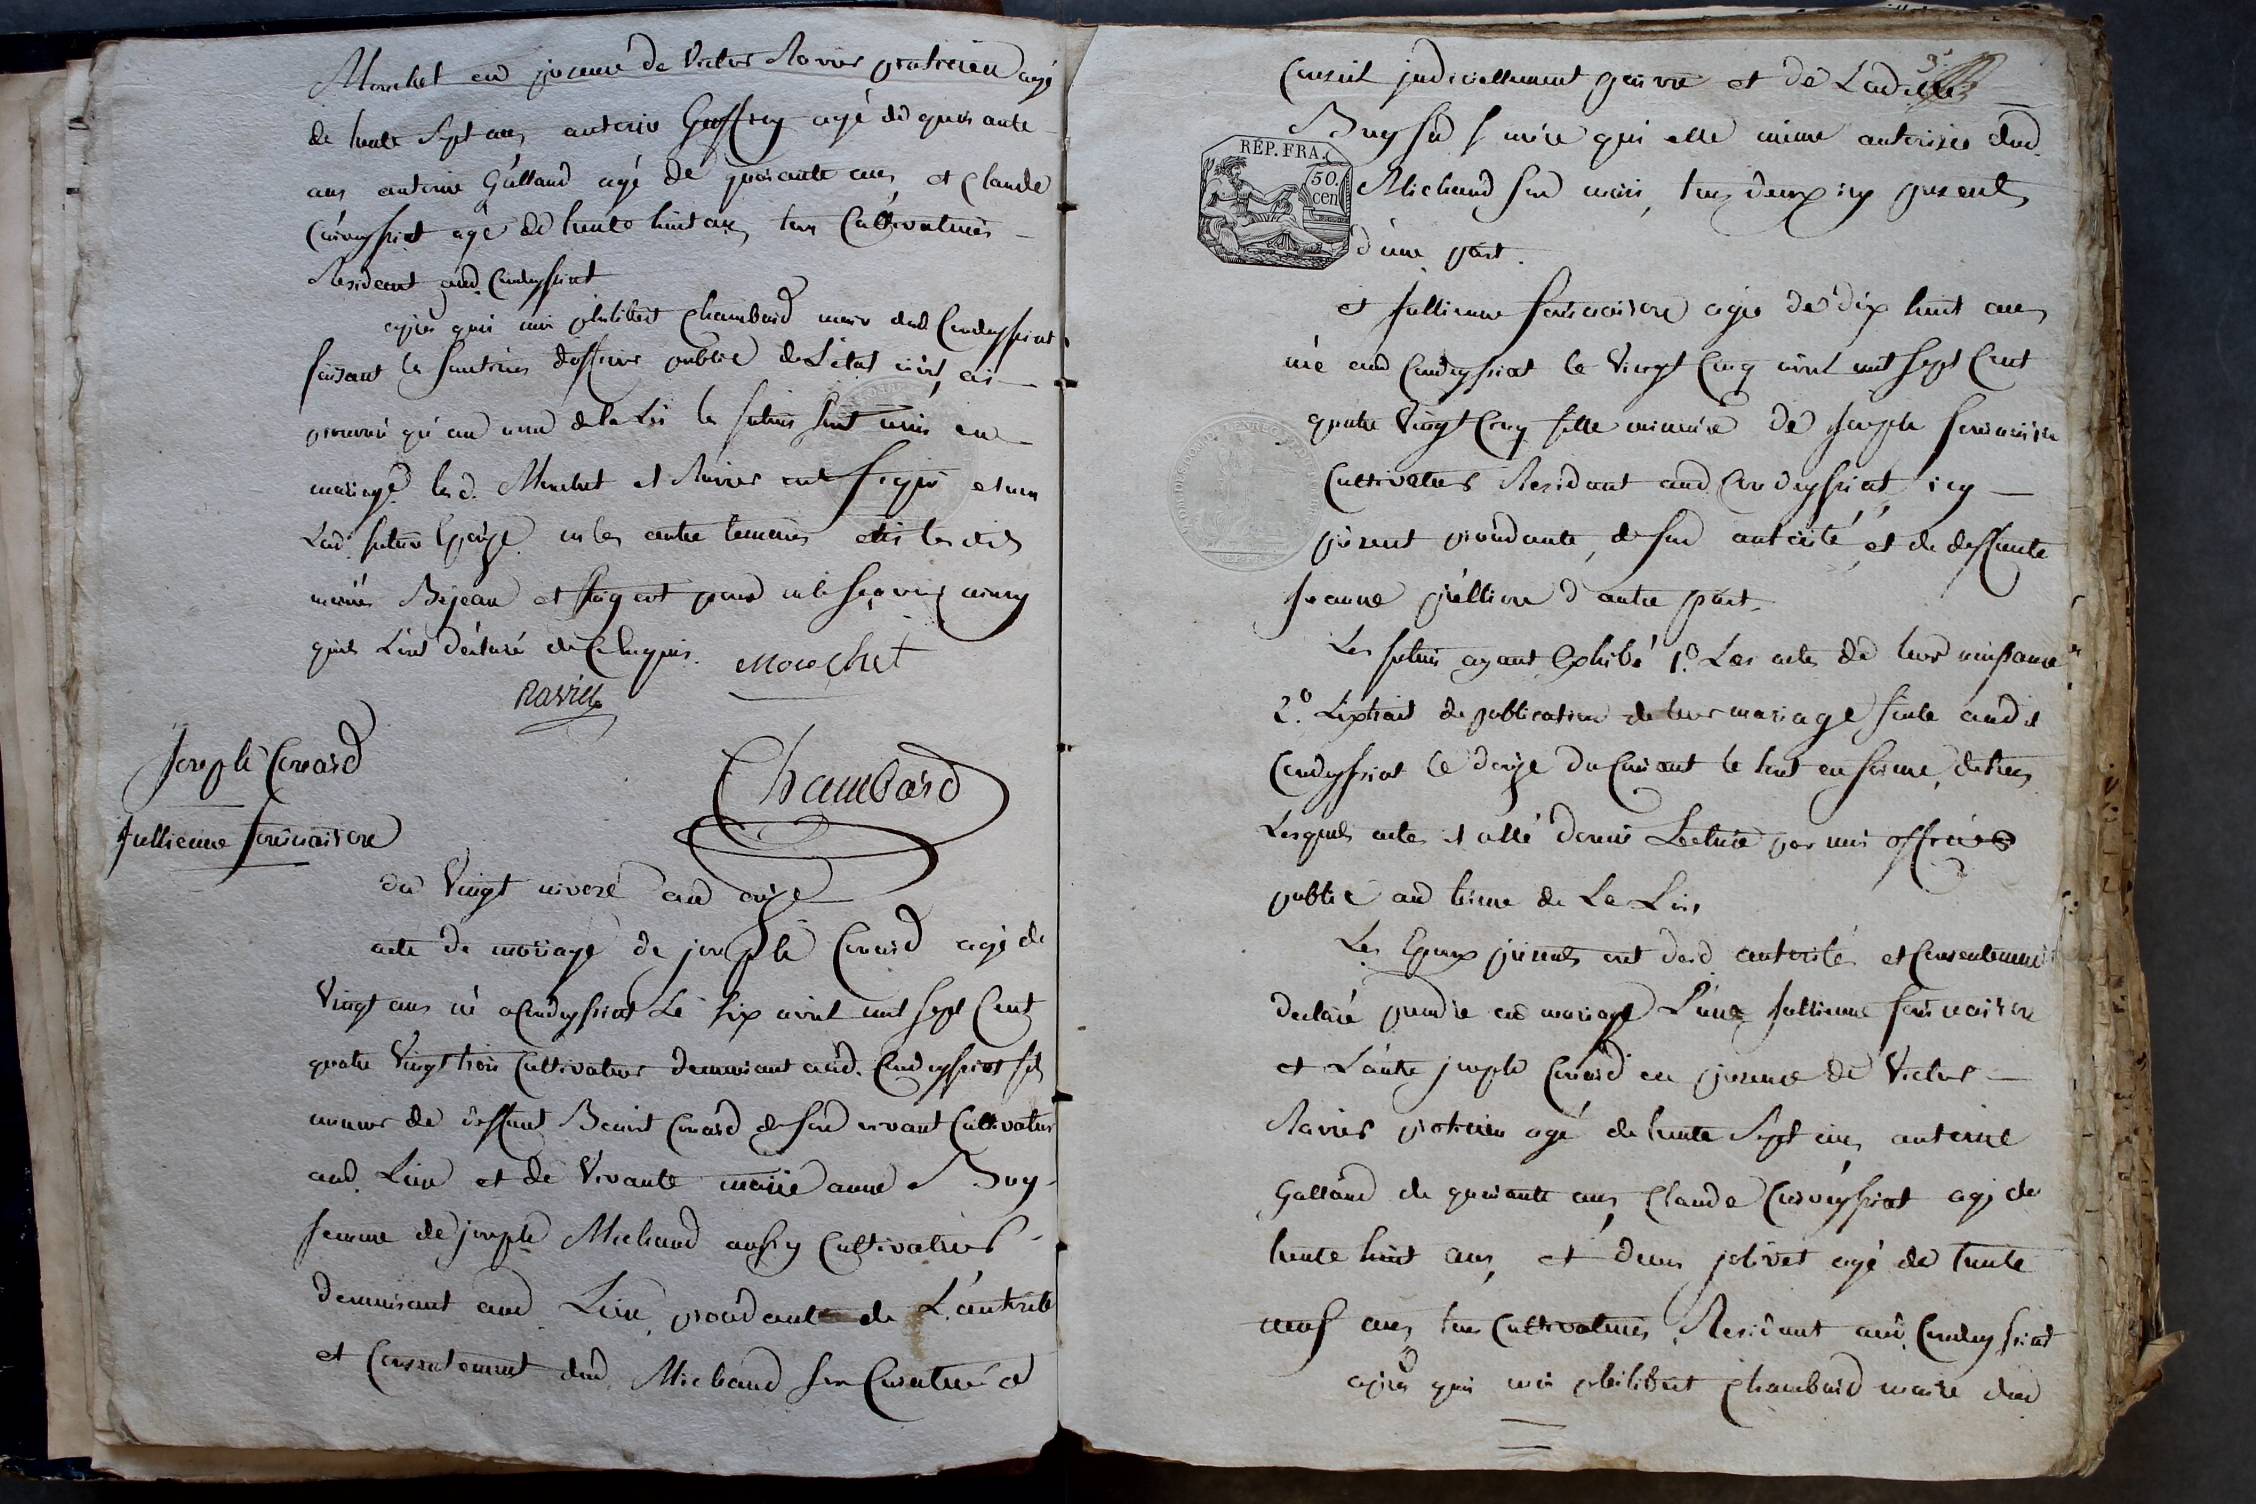 Mouchet en presence de Victor Ravier praticien agé
de trente Sept ans, antoine Geoffray agé de quarante
ans antoine Galland agé de quarante ans, et Claude
Curveyssiat agé de trente huit ans, tous Cultivateurs
Residant aud. Condeyssiat
après quoi moi philibert Chambard maire dud. Condeyssiat
faisant les fonctions d'officier public de L'etat civil, ai
prononcé qu'au nom de la Loi les futurs sont unis en
mariage les d. Mouchet et Ravier ont signé et non
Lad. future Epouze ni les autre temoins
pour ne le sçavoir ainsy
quils L'ont déclaré de Ce Enquis.
Mouchet
Ravier
Chambard
Joseph Conard
Jullienne fournaison
du Vingt nivose an onze
acte de mariage de joseph Conard agé de
Vingt ans né a Condeyssiat Le six avril mil sept Cent
quatre Vingt trois Cultivateur demeurant aud. Condeyssiat fils
mineur de deffunt Benoit Conard de son vivant Cultivateur
aud. Lieu et de Vivante marie anne Buy
femme de joseph Michaud aussy Cultivateur
demeurant aud. Lieu, procédant de L'autorité
et Consentement dud. Michaud son Curateur a
Conseil judiciellement pourvu et de Ladite
Buy sa mère qui elle même autorisée dud.
Michaud son mari, tous deux icy presents
d'une part.
RÉP. FRA.
50
cen
et Jullienne fournaison agée de dix huit ans
née aud Condeyssiat le Vingt Cinq avril mil sept Cent
quatre Vingt Cinq fille mineure de joseph fournaison
Cultivateur Residant aud. Condeyssiat, icy
présent procédante, de son autorité, et de deffunte
Jeanne d'autre part.
Les futurs ayant Exhibé 1.º Les actes de leur naissance
2.º L'extrait de publication de leur mariage faite audit
Condeyssiat le douze du Courant le tout en forme, de tous
Lesquels actes il a été donné Lecture par moi officier
public au terme de La Loi,
Les Epoux présents ont desd. autorités et Consentement
declaré prendre en mariage L'une Jullienne fournaison
et L'autre joseph Conard en presence de Victor
Ravier praticien agé de trente Sept ans, antoine
Galland de quarante ans, Claude Curveyssiat agé de
trente huit ans, et denis jolivet agé de trente
neuf ans, tous Cultivateurs, Residant aud. Condeyssiat
après quoi moi philibert Chambard maire dud